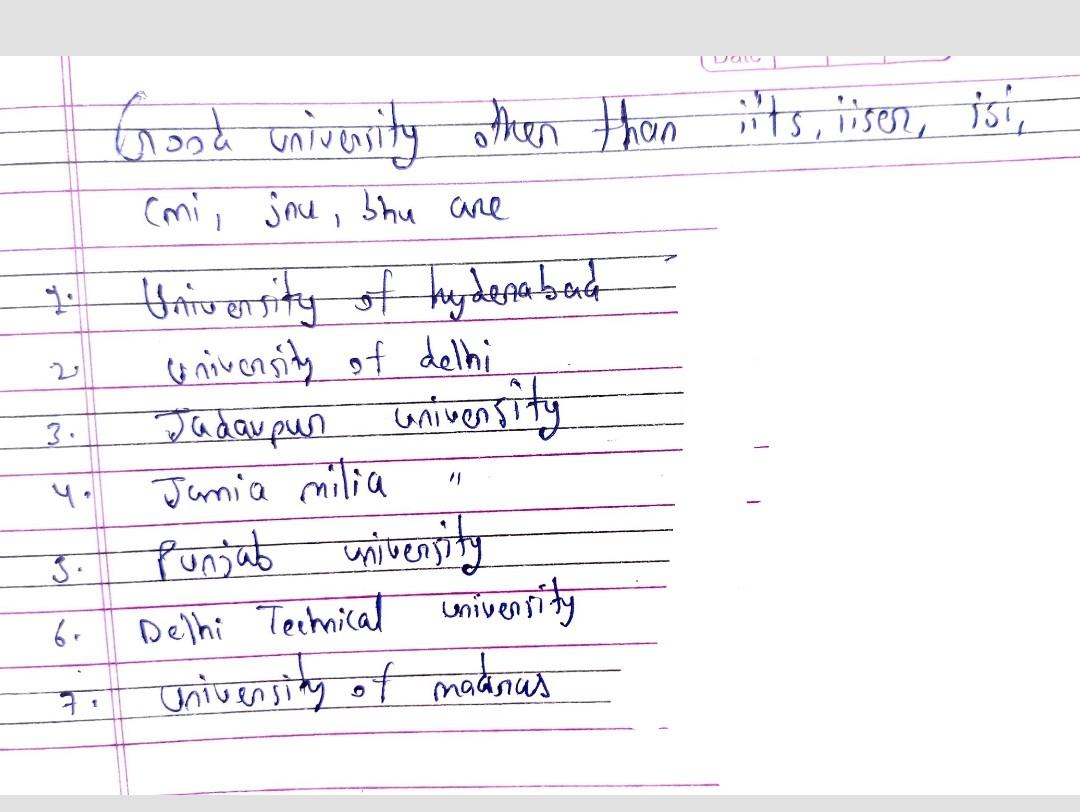 Date
Good university other than iits, iiser, isi,
cmi, jnu, bhu are
1. University of hyderabad
2. university of delhi
3. Jadavpur university
4. Jamia milia "
5. Punjab university
6. Delhi Technical university
7. University of madras